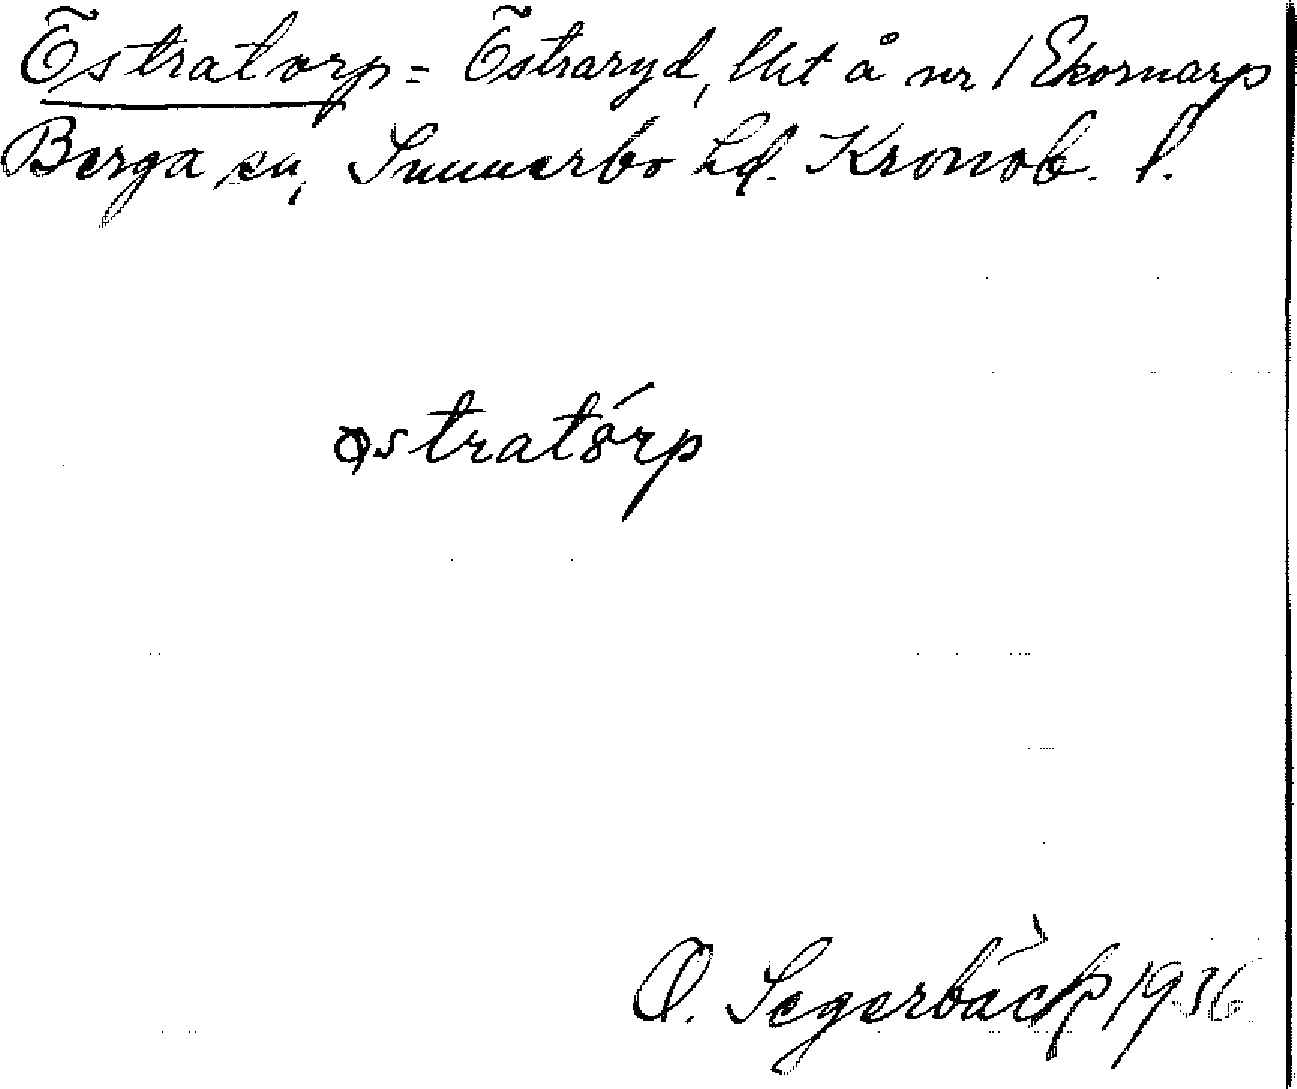 Östratorp = Östraryd, lht å nr 1 Ekornarp
Berga sn, Sunnerbo hd. Kronob. l.
østratórp
O. Segerbäck 1936